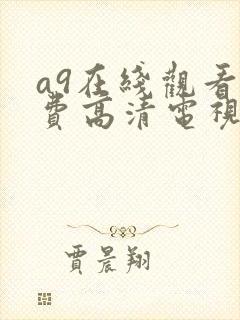 a9在綫觀看
費高清電視
賈晨翔